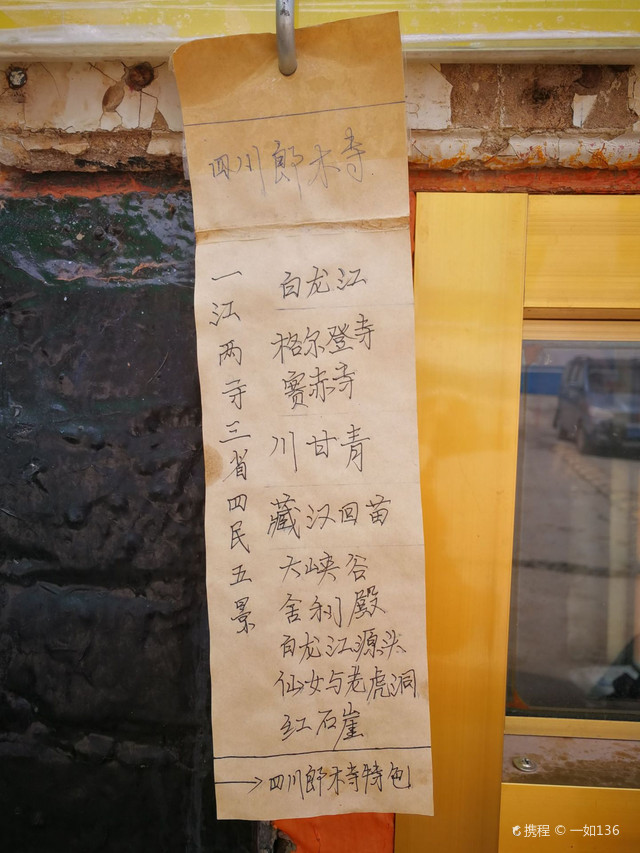 四川郎木寺
一江两寺三省四民五景
白龙江
格尔登寺
赛赤寺
川甘青
藏汉回苗
大峡谷
舍利殿
白龙江源头
仙女与老虎洞
红石崖
→四川郎木寺特色
携程 © 一如136